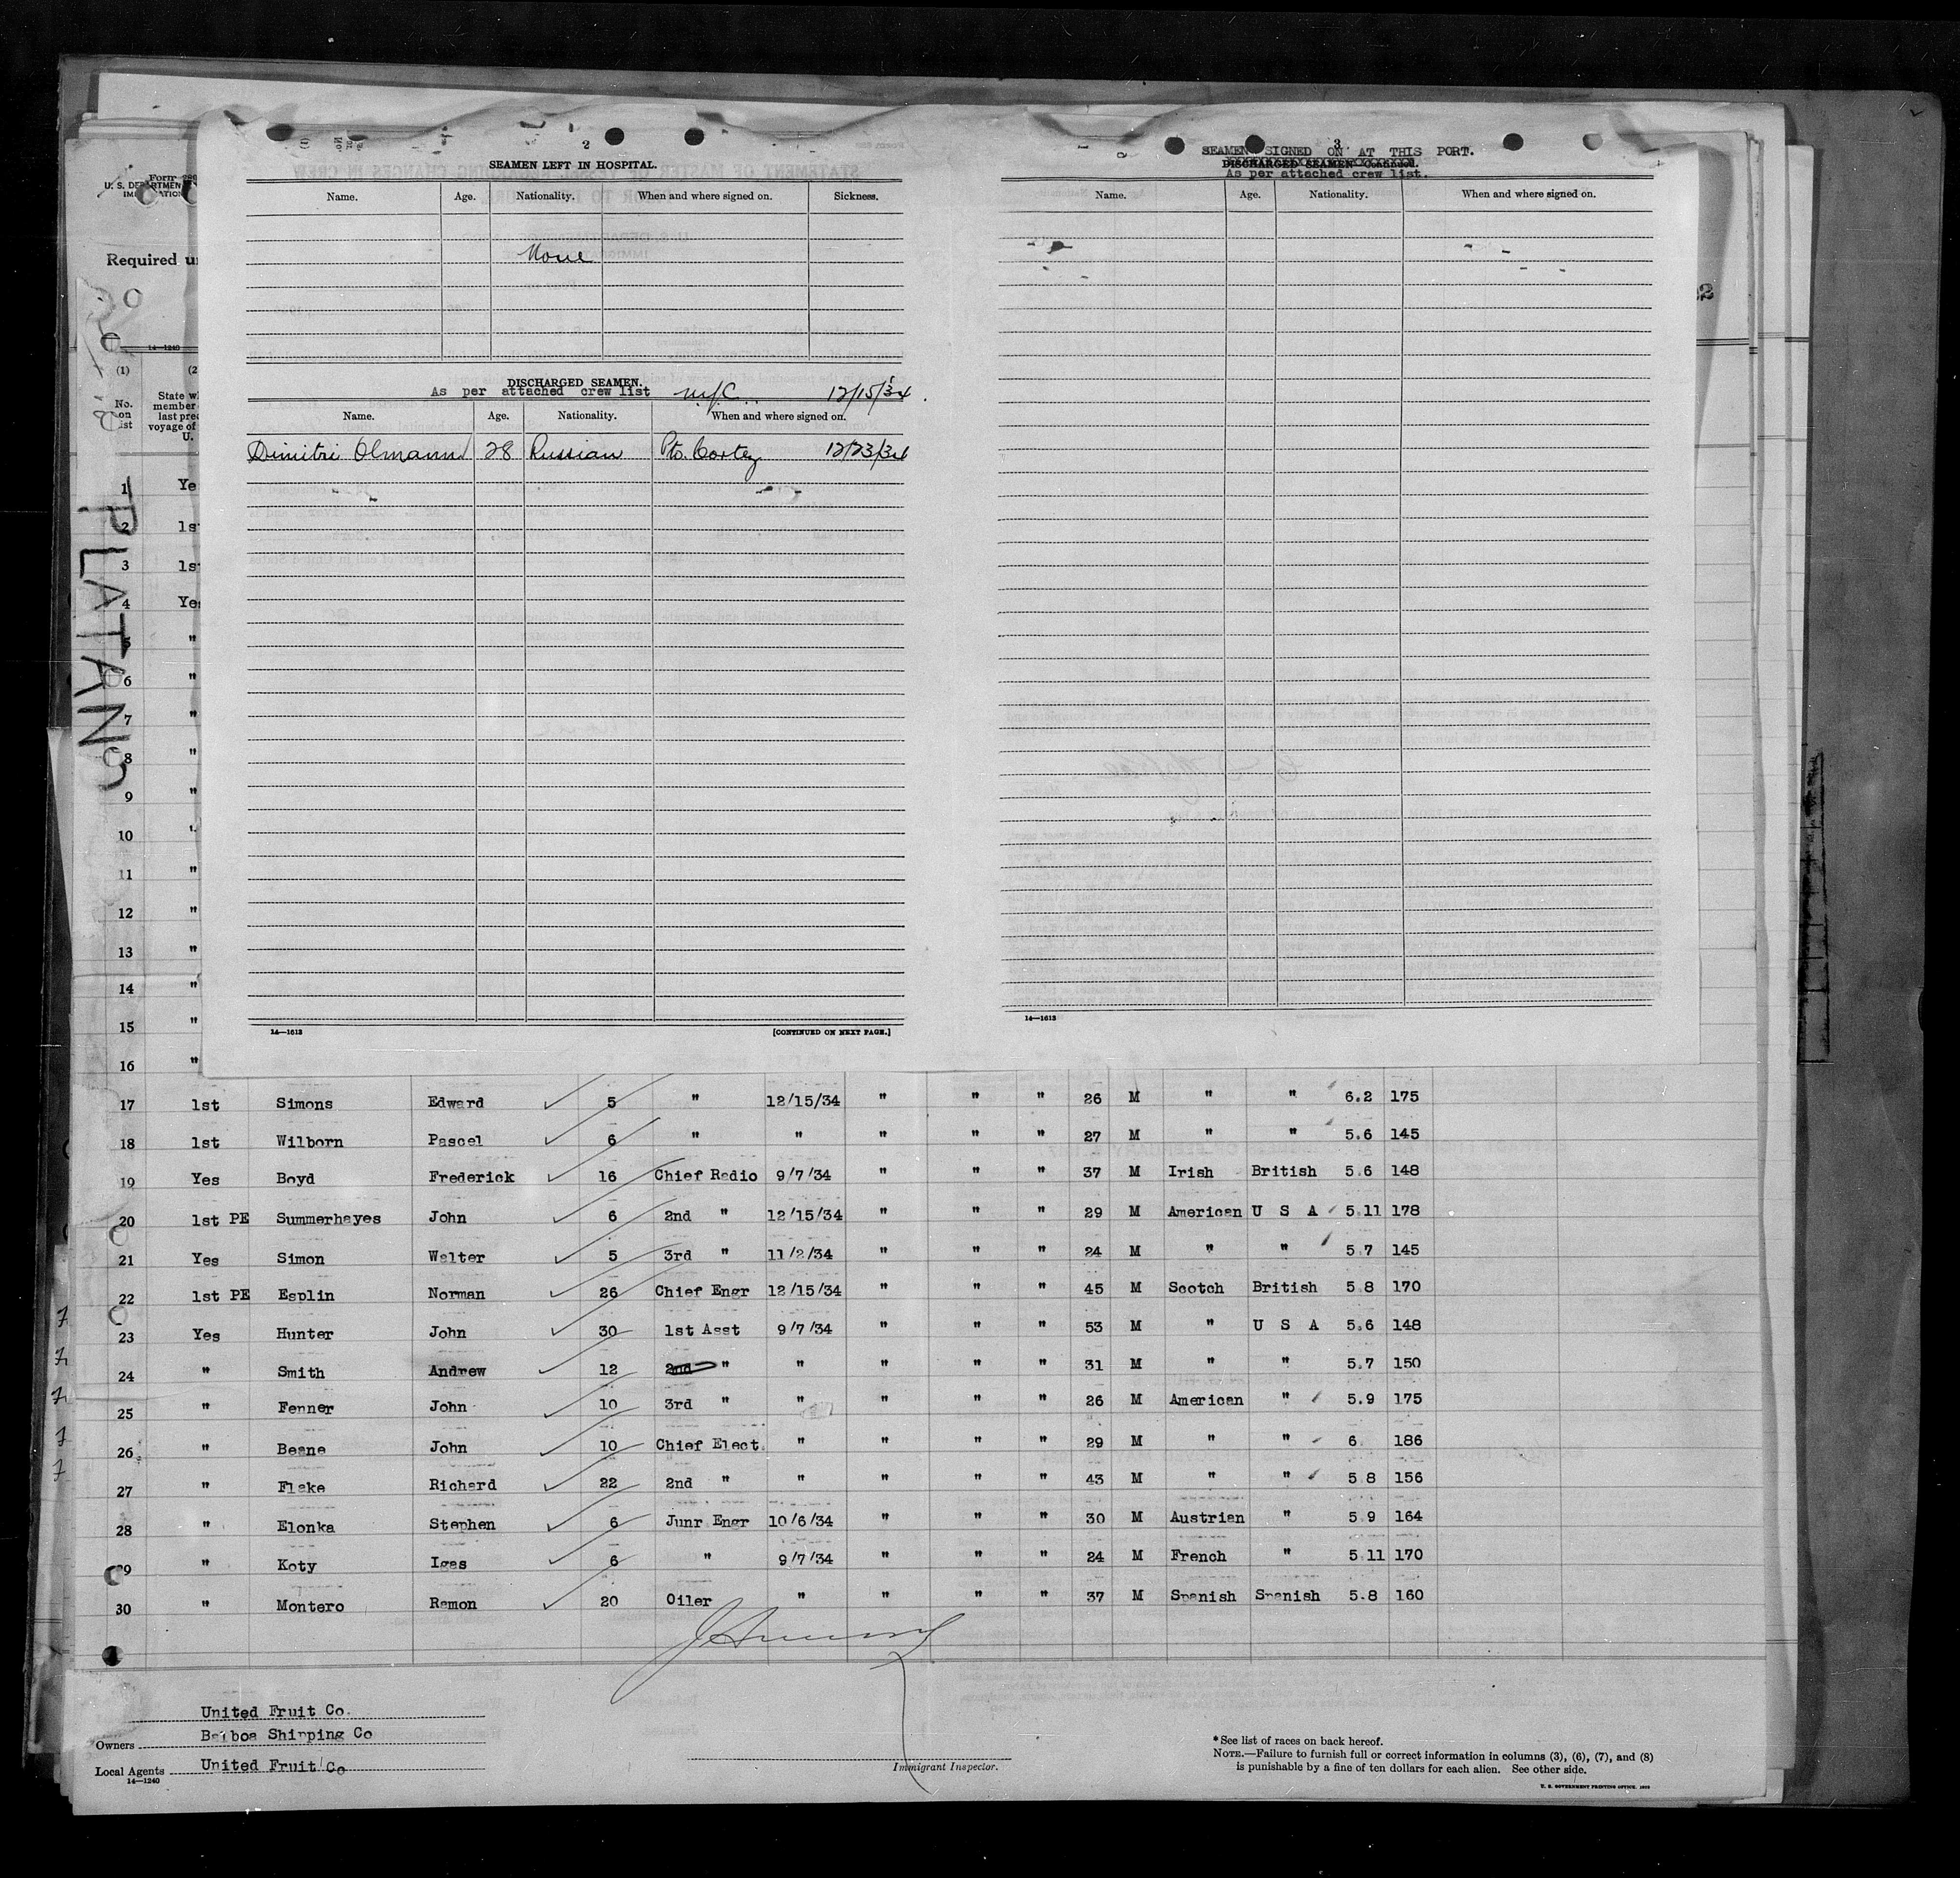 2
SEAMEN LEFT IN HOSPITAL.
Name. Age. Nationality. When and where signed on. Sickness.
None
DISCHARGED SEAMEN.
As per attached crew list N.Y.C. 12/15/34
Name. Age. Nationality. When and where signed on.
Dimitri Olmann 28 Russian Pto. Cortez 12/23/34
14—1613 [CONTINUED ON NEXT PAGE.]
3
SEAMEN SIGNED ON AT THIS PORT.
DISCHARGED SEAMEN—Continued.
As per attached crew list.
Name. Age. Nationality. When and where signed on.
14—1613
Form
U. S. DEPARTMENT
Required
14—1240
(1)
No. on list
State
member
last
voyage of
U.
PLATANO
1 Ye
2 1s
3 1s
4 Yes
5 "
6 "
7 "
8 "
9 "
10 "
11 "
12 "
13 "
14 "
15 "
16 "
17 1st Simons Edward 5 " 12/15/34 " " " 26 M " " 6.2 175
18 1st Wilborn Pascel 6 " " " " " 27 M " " 5.6 145
19 Yes Boyd Frederick 16 Chief Radio 9/7/34 " " " 37 M Irish British 5.6 148
20 1st PE Summerhayes John 6 2nd " 12/15/34 " " " 29 M American U S A 5.11 178
21 Yes Simon Walter 5 3rd " 11/2/34 " " " 24 M " " 5.7 145
22 1st PE Esplin Norman 26 Chief Engr 12/15/34 " " " 45 M Scotch British 5.8 170
23 Yes Hunter John 30 1st Asst 9/7/34 " " " 53 M " U S A 5.6 148
24 " Smith Andrew 12 2nd " " " " " 31 M " " 5.7 150
25 " Fenner John 10 3rd " " " " " 26 M American " 5.9 175
26 " Beane John 10 Chief Elect. " " " " 29 M " " 6 186
27 " Flake Richard 22 2nd " " " " " 43 M " " 5.8 156
28 " Elonka Stephen 6 Junr Engr 10/6/34 " " " 30 M Austrian " 5.9 164
29 " Koty Igas 6 " 9/7/34 " " " 24 M French " 5.11 170
30 " Montero Ramon 20 Oiler " " " " 37 M Spanish Spanish 5.8 160
United Fruit Co.
Owners Balboa Shipping Co
Local Agents United Fruit Co
14—1240
Immigrant Inspector.
*See list of races on back hereof.
NOTE.—Failure to furnish full or correct information in columns (3), (6), (7), and (8)
is punishable by a fine of ten dollars for each alien. See other side.
U. S. GOVERNMENT PRINTING OFFICE